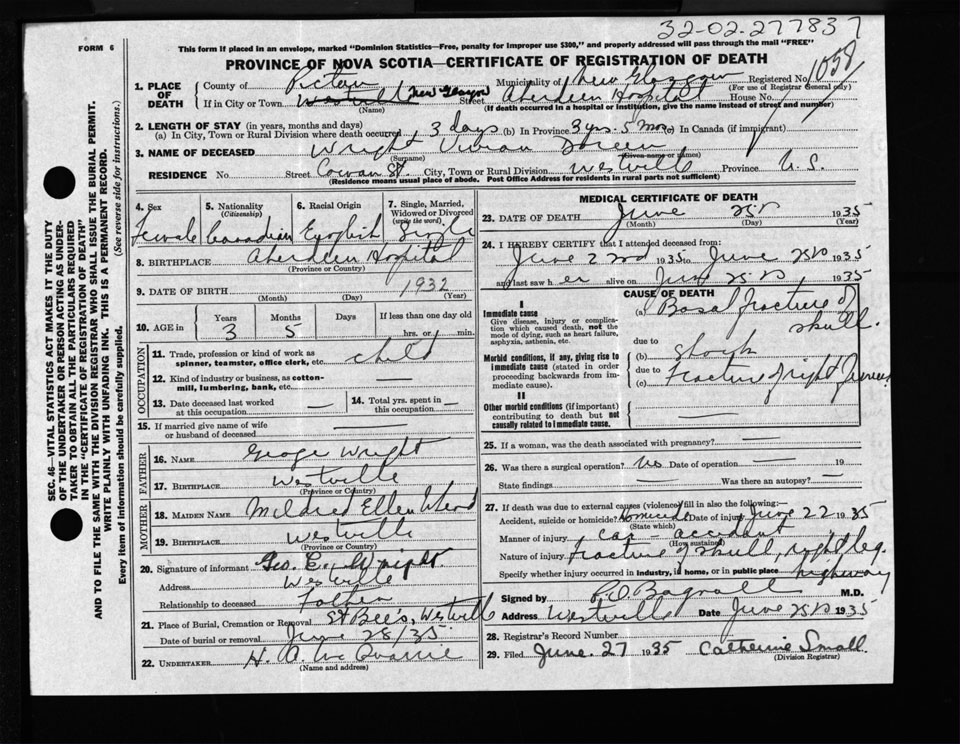 32-02-277837
FORM 6
This form if placed in an envelope, marked "Dominion Statistics—Free, penalty for improper use $300," and properly addressed will pass through the mail "FREE"
PROVINCE OF NOVA SCOTIA—CERTIFICATE OF REGISTRATION OF DEATH
1. PLACE OF DEATH
County of Pictou Municipality of New Glasgow Registered No. 1058
(For use of Registrar General only)
If in City or Town Westville New Glasgow Street Aberdeen Hospital House No.
(Name) (If death occurred in a hospital or institution, give the name instead of street and number)
2. LENGTH OF STAY (in years, months and days)
(a) In City, Town or Rural Division where death occurred 3 days (b) In Province 3 yrs. 5 mos (c) In Canada (if immigrant)
3. NAME OF DECEASED Wright Vivian
(Surname) (Given name or names)
RESIDENCE No. Street Cowan St. City, Town or Rural Division Westville Province N.S.
(Residence means usual place of abode. Post Office Address for residents in rural parts not sufficient)
4. Sex Female
5. Nationality (Citizenship) Canadian
6. Racial Origin English
7. Single, Married, Widowed or Divorced (write the word) Single
8. BIRTHPLACE Aberdeen Hospital
(Province or Country)
9. DATE OF BIRTH 1932
(Month) (Day) (Year)
10. AGE in Years 3 Months 5 Days If less than one day old hrs. or min.
OCCUPATION
11. Trade, profession or kind of work as spinner, teamster, office clerk, etc. child
12. Kind of industry or business, as cotton-mill, lumbering, bank, etc. —
13. Date deceased last worked at this occupation —
14. Total yrs. spent in this occupation —
15. If married give name of wife or husband of deceased
FATHER
16. NAME George Wright
17. BIRTHPLACE Westville
(Province or Country)
MOTHER
18. MAIDEN NAME Mildred Ellen
19. BIRTHPLACE Westville
(Province or Country)
20. Signature of informant Geo. E. Wright.
Address Westville
Relationship to deceased Father
21. Place of Burial, Cremation or Removal St Bee's, Westville
Date of burial or removal June 28/35
22. UNDERTAKER H. A. McQuarrie
(Name and address)
MEDICAL CERTIFICATE OF DEATH
23. DATE OF DEATH June 25 1935
(Month) (Day) (Year)
24. I HEREBY CERTIFY that I attended deceased from:
June 22nd 1935 to June 25 1935
and last saw h er alive on June 25 1935
CAUSE OF DEATH
I
Immediate cause
Give disease, injury or complication which caused death, not the mode of dying, such as heart failure, asphyxia, asthenia, etc.
(a) Basal fracture of skull.
due to
Morbid conditions, if any, giving rise to immediate cause (stated in order proceeding backwards from immediate cause).
(b) Shock
due to
(c) Fracture of right
II
Other morbid conditions (if important) contributing to death but not causally related to immediate cause.
25. If a woman, was the death associated with pregnancy? —
26. Was there a surgical operation? no Date of operation — 19
State findings — Was there an autopsy? —
27. If death was due to external causes (violence) fill in also the following:
Accident, suicide or homicide? Homicide Date of injury June 22 1935
(State which)
Manner of injury car - accident
(How sustained)
Nature of injury fracture of skull, right leg.
Specify whether injury occurred in industry, in home, or in public place highway
Signed by Bagnall M.D.
Address Westville Date June 25 1935
28. Registrar's Record Number
29. Filed June. 27 1935 Catherine Small.
(Division Registrar)
SEC. 46—VITAL STATISTICS ACT MAKES IT THE DUTY
OF THE UNDERTAKER OR PERSON ACTING AS UNDER-
TAKER TO OBTAIN ALL THE PARTICULARS REQUIRED
IN THE "CERTIFICATE OF REGISTRATION OF DEATH"
AND TO FILE THE SAME WITH THE DIVISION REGISTRAR WHO SHALL ISSUE THE BURIAL PERMIT.
WRITE PLAINLY WITH UNFADING INK. THIS IS A PERMANENT RECORD.
Every item of information should be carefully supplied. (See reverse side for instructions.)